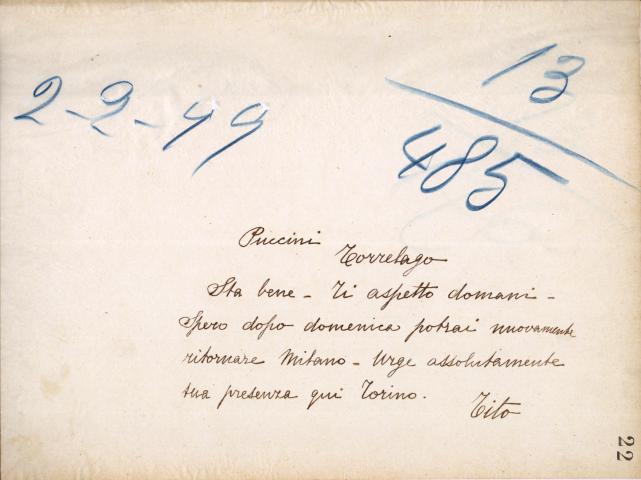 2-2-99
13
485
Puccini
Torrelago
Sta bene - Ti aspetto domani -
Spero dopo domenica potrai nuovamente
ritornare Milano - Urge assolutamente
tua presenza qui Torino.
Tito
22